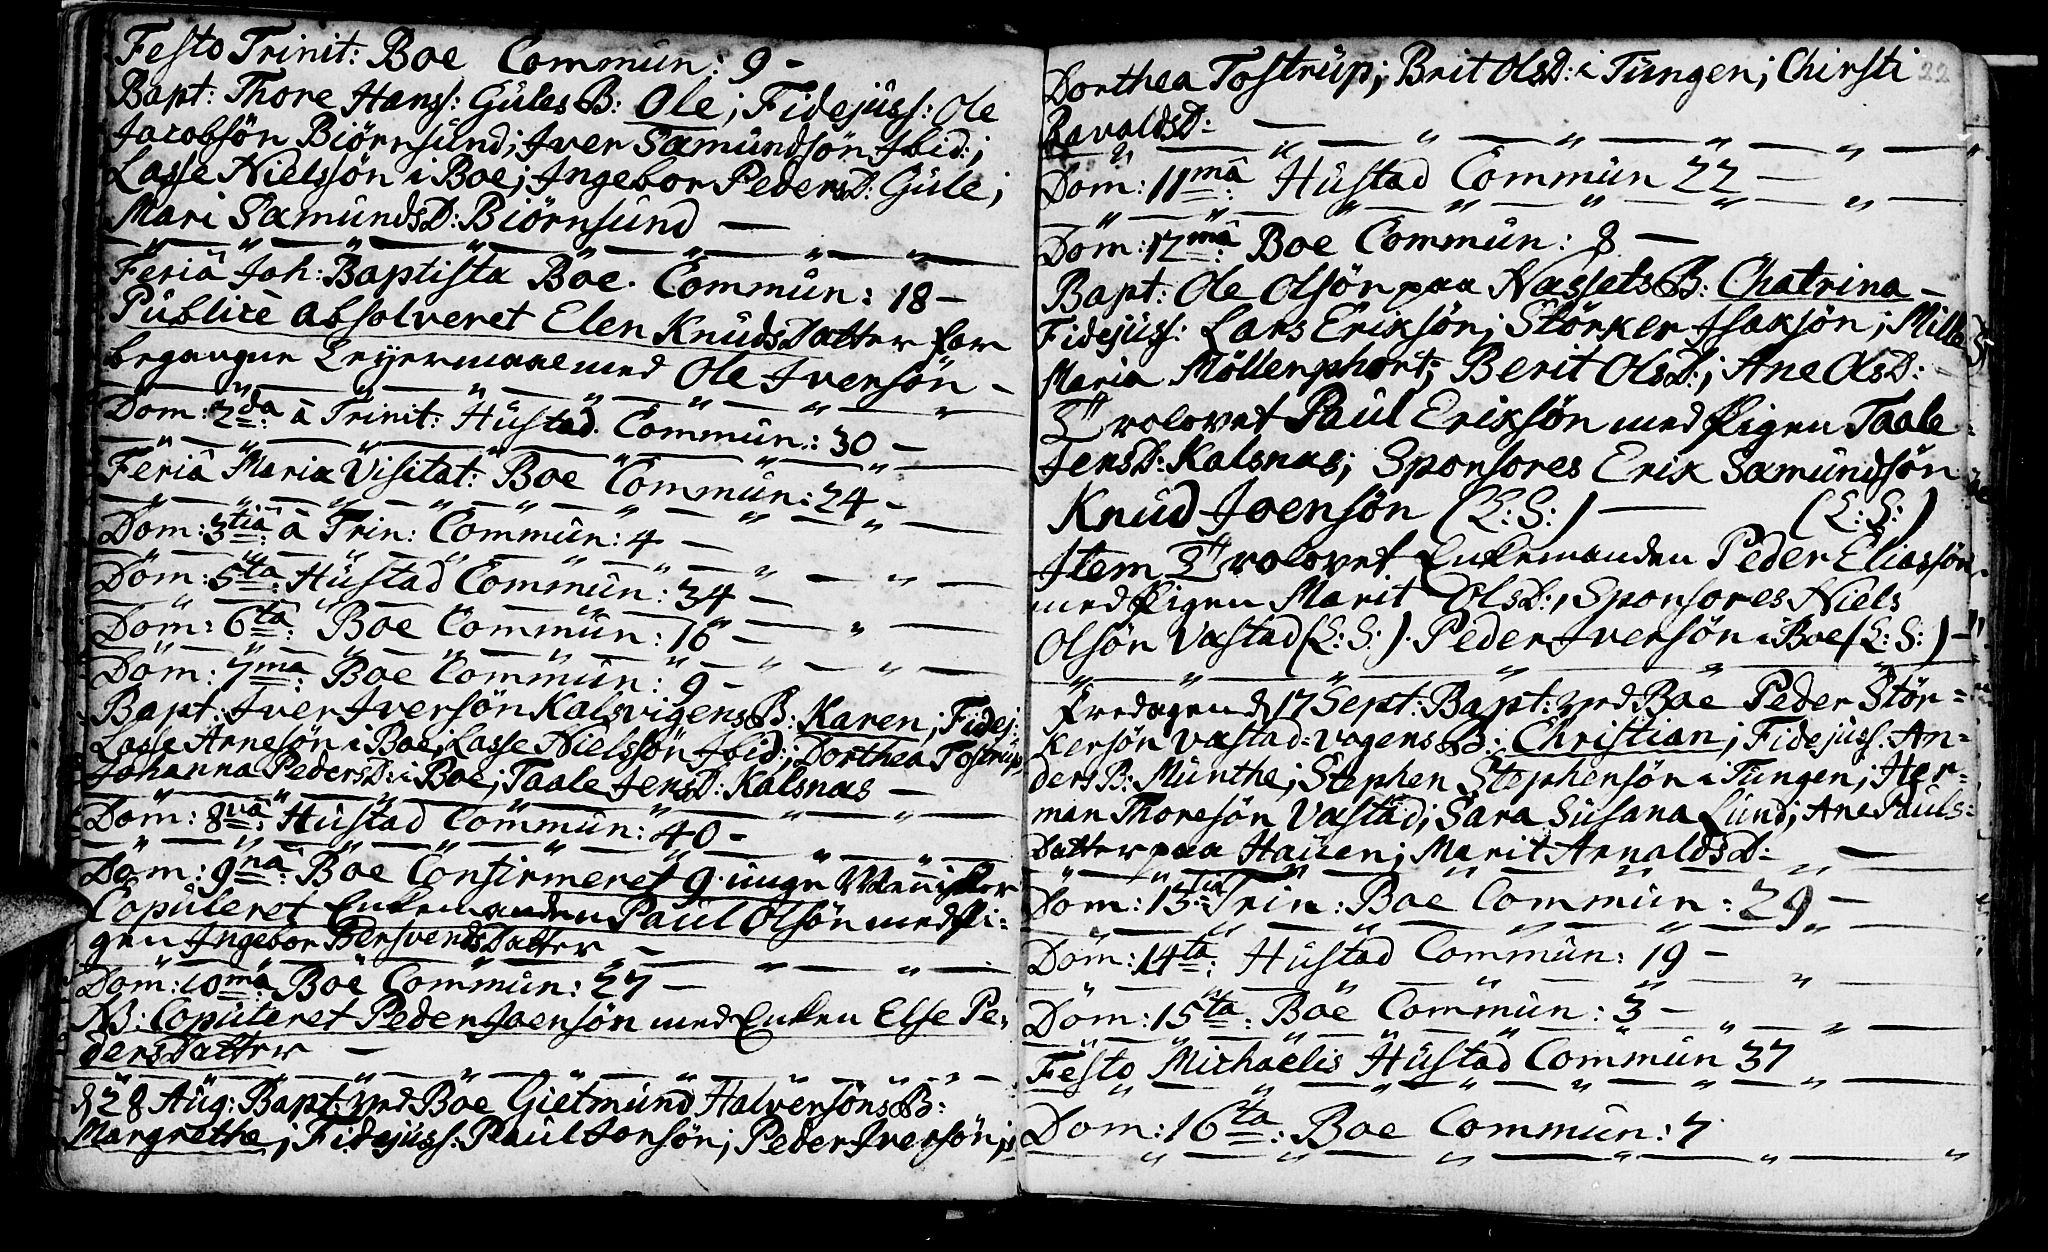 Festo Trinit: Boe Commun: 9 -
Bapt: Thore Hanss: Gules B: Ole; Fidejuss: Ole
Jacobsön Biörnsund; Iver Sæmundsön Ibid:;
Lasse Nielssön i Boe; Ingebor PedersD: Gule;
Mari SæmundsD: Biörnsund —
Feriâ Joh: Baptistæ Boe. Commun: 18 -
Publicè absolveret Elen KnudsDatter for
begangne Leyermaal med Ole Iversön -
Dom: 2da â Trinit: Hustad. Commun: 30 -
Feriâ Mariæ Visitat: Boe Commun: 24 -
Dom: 3tiâ â Trin: Commun: 4 -
Dom: 5ta: Hustad Commun: 34 -
Dom: 6ta: Boe Commun: 16 -
Dom: 7ma: Boe Commun: 9 -
Bapt: Iver Iversön Kalsvigens B: Karen; Fidej:
Lasse Arnesön i Boe; Lasse Nielssön Ibid:; Dorthea Tostrup,
Johanna PedersD: i Boe; Taale JensD: Kalsnæs —
Dom: 8va: Hustad Commun: 40 -
Dom: 9nâ: Boe Confirmeret 9 unge Mennisker
Copuleret Enkemanden Paul Olsön med Pi-
gen Ingebor BersvendsDatter —
Dom: 10mâ: Boe Commun: 27 -
NB: Copuleret Peder Joensön med Enken Else Pe-
dersDatter —
d 28 Aug: Bapt: ved Boe Gietmund Halversöns B:
Margrethe; Fidejuss: Paul Jonsön; Peder Iversön;
Dorthea Tostrup; Brit OlsD: i Tungen; Chirsti 22
RavaldsD: —
Dom: 11mâ: Hustad Commun 22 —
Dom: 12mâ: Boe Commun: 8 —
Bapt: Ole Olsön paa Næssets B: Chatrina -
Fidejuss: Lars Eriksön; Störker Isaksön;
Maria Möllerphort; Berit OlsD:; Ane OlsD:
Trolovet Paul Eriksön med Pigen Taale
JensD: Kalsnæs; Sponsores Erik Sæmundsön
Knud Joensön (L: S:) — (L: S:)
Item Trolovet Enkemanden Peder Eliassön
med Pigen Marit OlsD:, Sponsores Niels
Olsön Vastad (L: S:). Peder Iversön i Boe (L: S:) -
Fredagen d 17 Sept: Bapt: ved Boe Peder Stör-
kersön Vastad-vogens B: Christian; Fidejuss: An-
ders B: Munthe; Stephen Stephensön i Tungen; Her-
man Thoresön Vastad; Sara Susana Lund; Ane Pauls-
Datter paa Hauen; Marit ArnaldsD: —
Dom: 13tia Trin: Boe Commun: 29 —
Dom: 14ta: Hustad Commun: 19 -
Dom: 15ta: Boe Commun: 3 -
Festo Michaelis Hustad Commun 37
Dom: 16ta: Boe Commun: 7